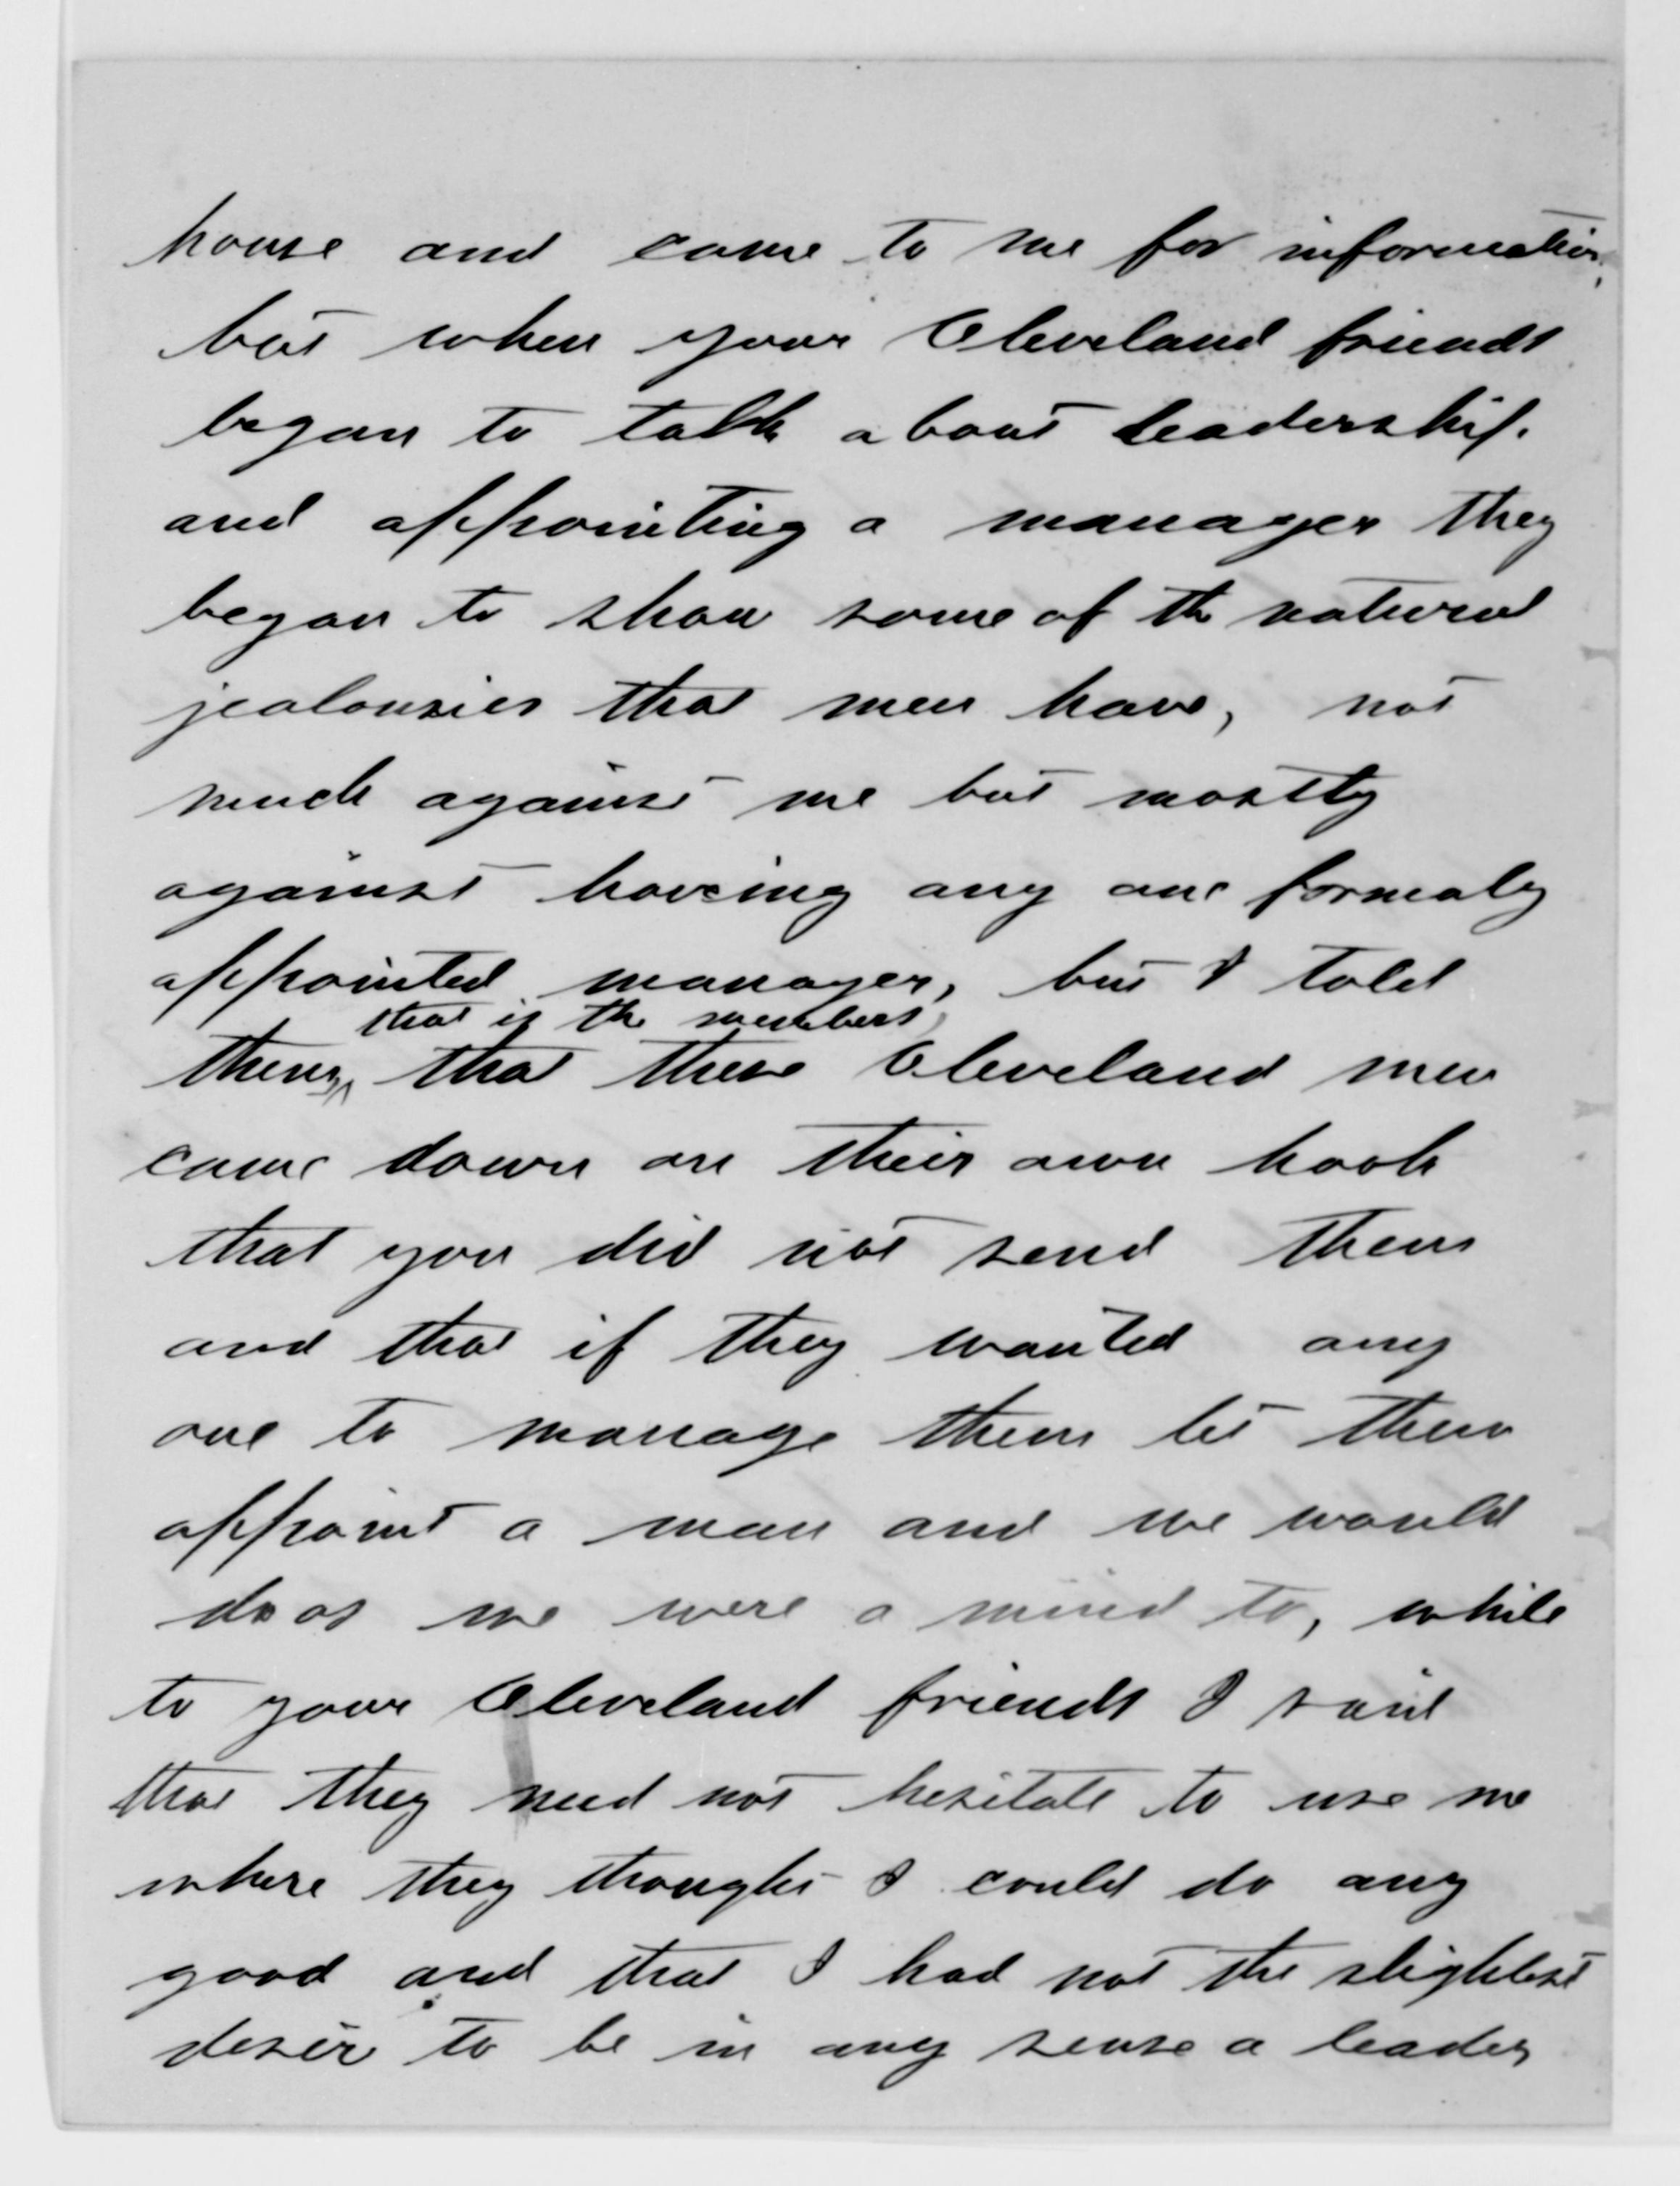 house and came to me for information,
but when your Cleveland friends
began to talk about leadership.
and appointing a manager they
began to show some of the natural
jealousies that men have, not
much against me but mostly
against having any one formaly
appointed manager, but I told
that is the members,
them, that these Cleveland men
came down on their own hook
that you did not send them
and that if they wanted any
one to manage them let them
appoint a man and we would
do as we were a mind to, while
to your Cleveland friends I said
that they need not hesitate to use me
where they thought I could do any
good and that I had not the slightest
desire to be in any sense a leader